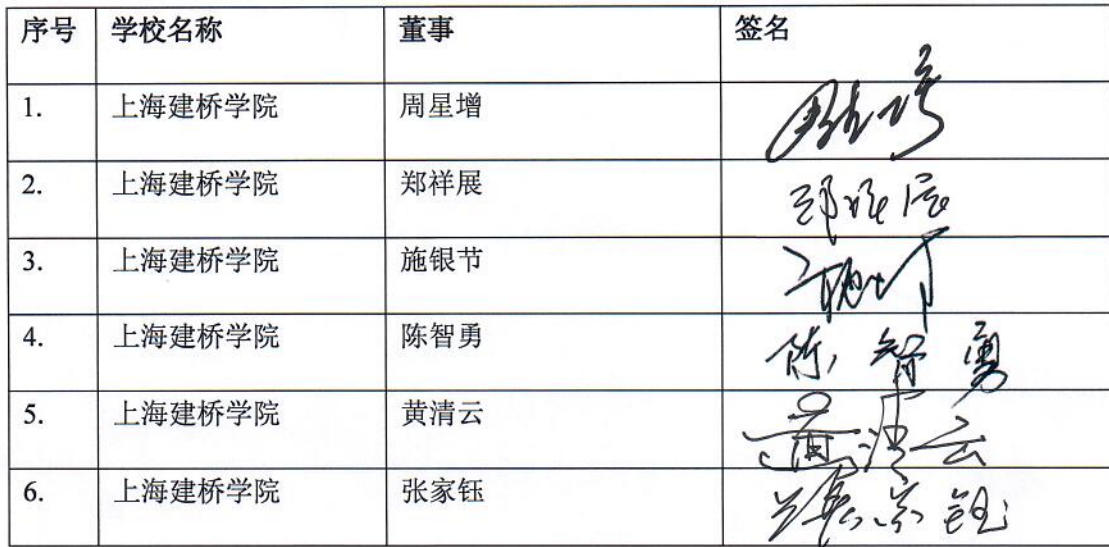 序号 学校名称 董事 签名
1. 上海建桥学院 周星增
2. 上海建桥学院 郑祥展 郑祥展
3. 上海建桥学院 施银节
4. 上海建桥学院 陈智勇 陈智勇
5. 上海建桥学院 黄清云 黄清云
6. 上海建桥学院 张家钰 张家钰